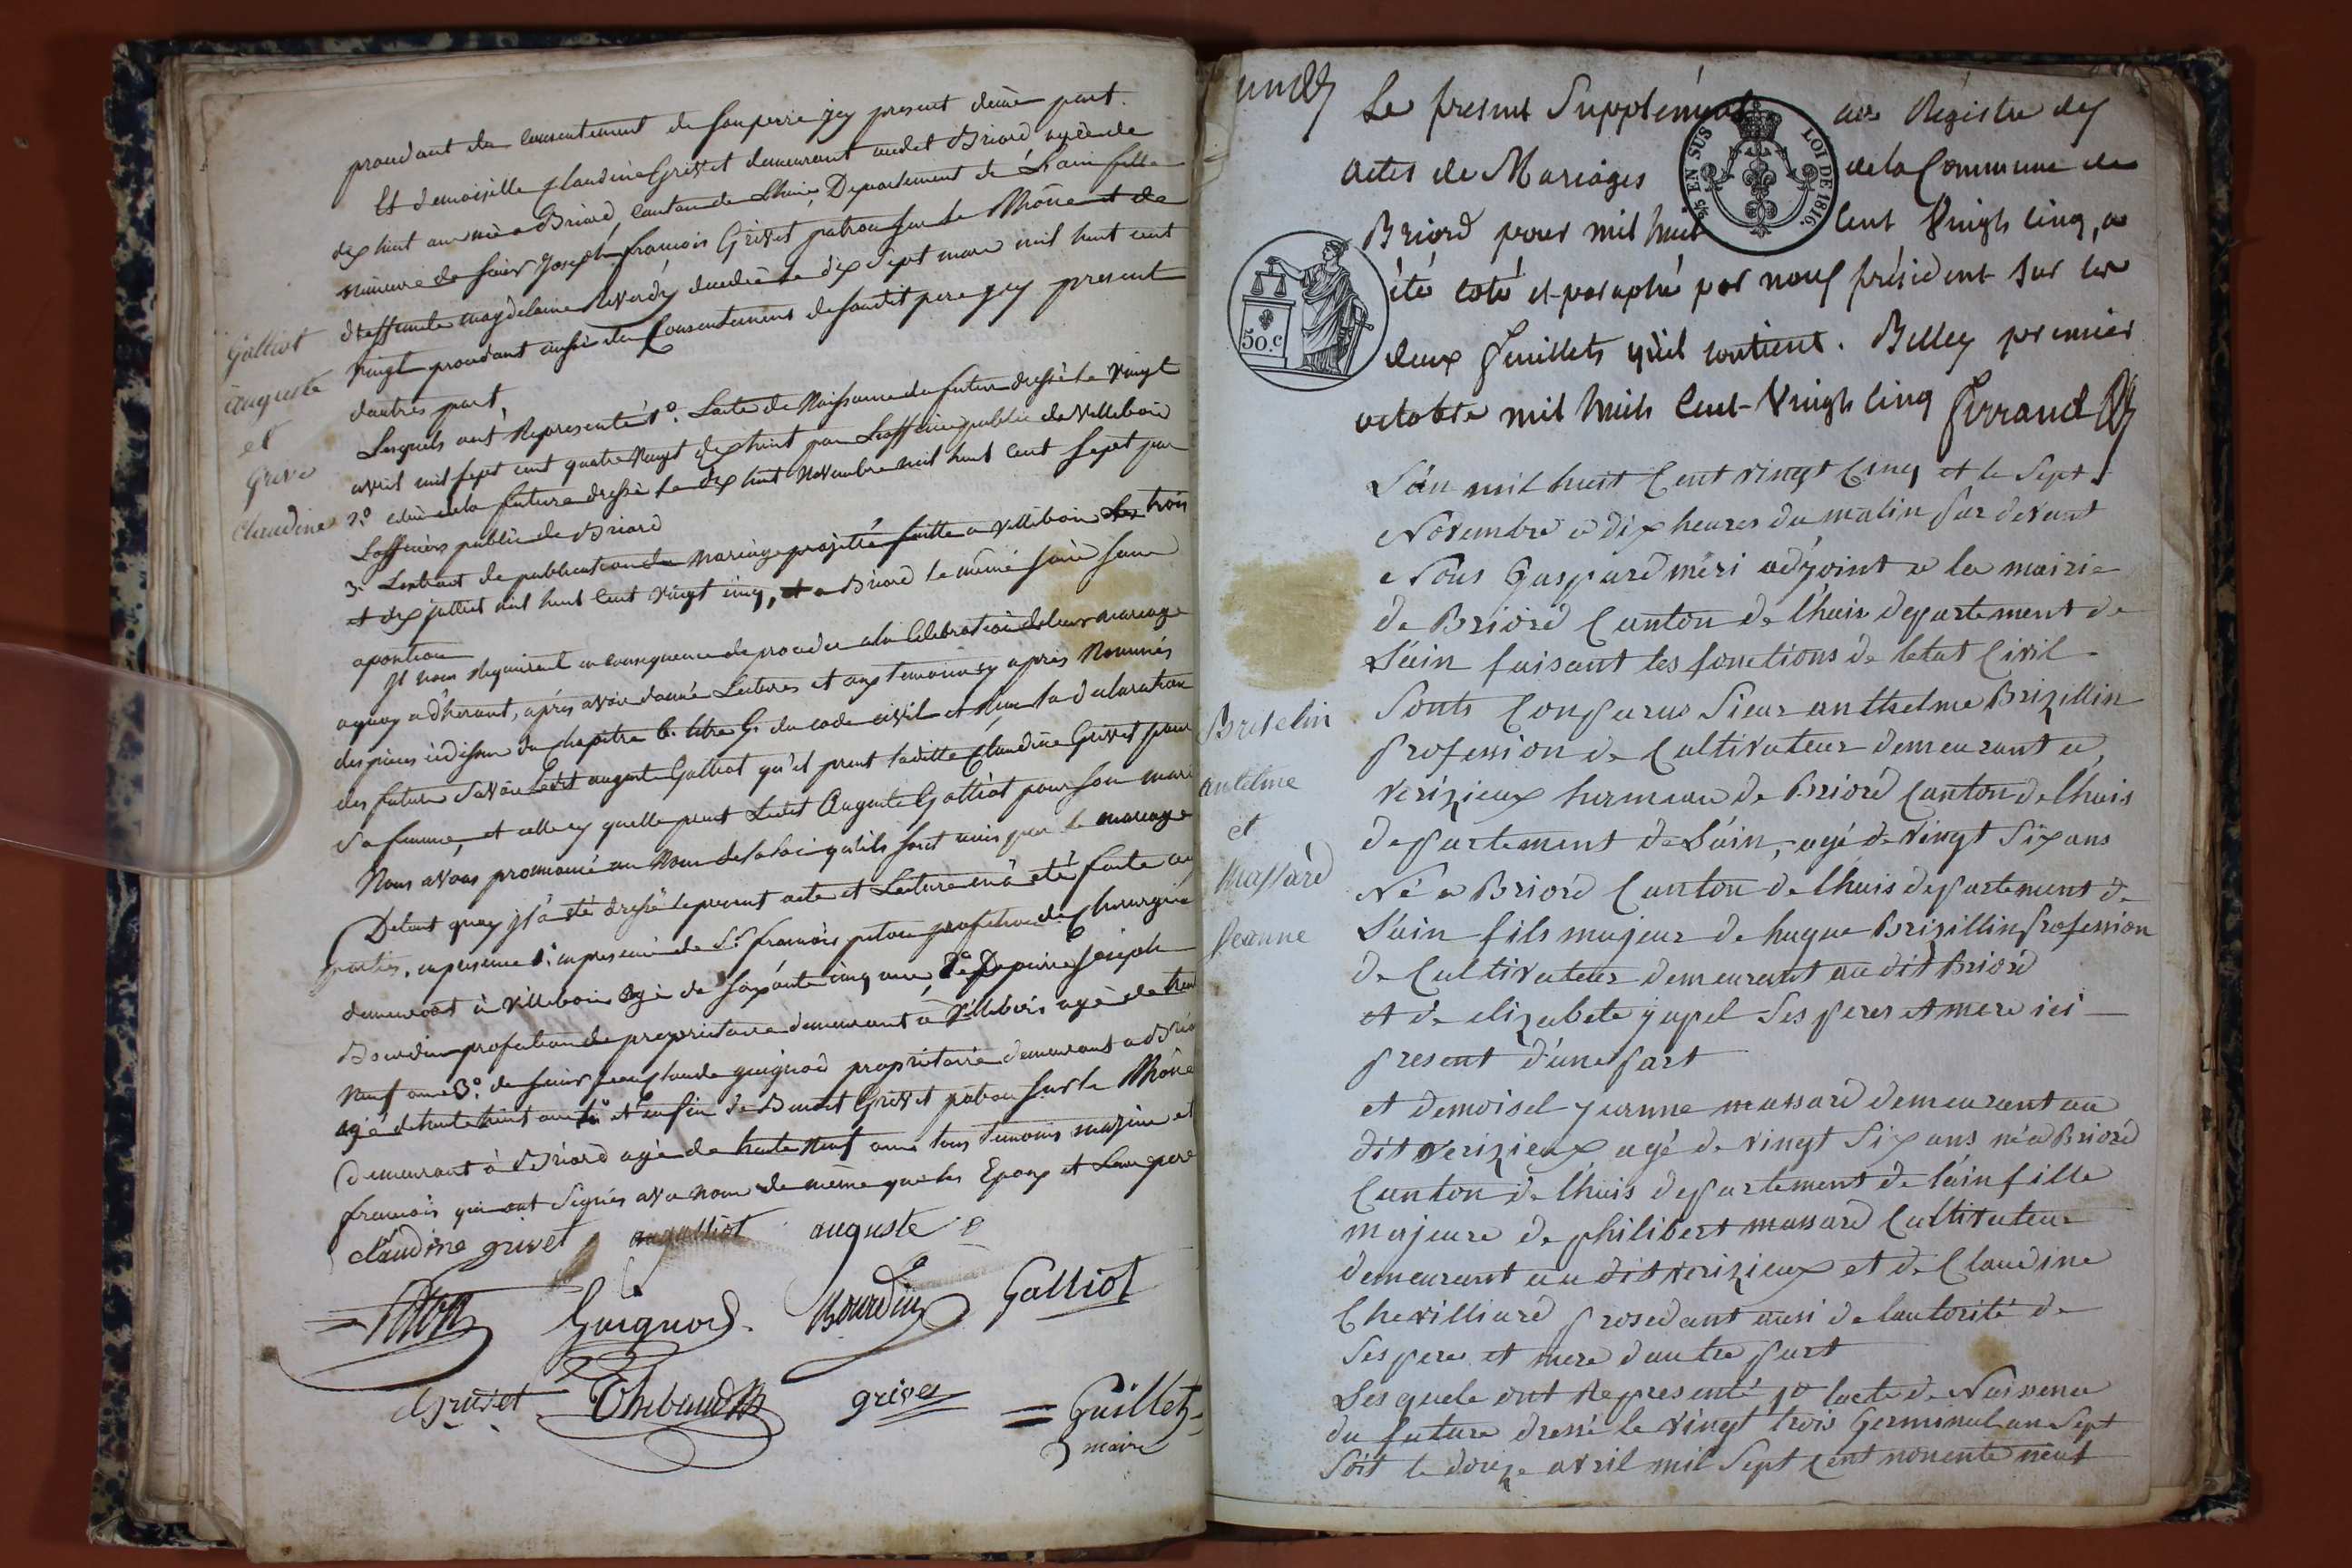 procédant du consentement de son perre jcy present dune part.
Et demoiselle Claudine Grivet demeurant audit Briord agée de
dix huit ans née a Briord, canton de Lhuis, Departement de L'ain fille
mineure de Sieur Joseph françois Grivet patron sur le Rhône et de
magdelaine decedée le dix Sept mars mil huit cent
vingt procedant aussi du Consentement de sondit pere jcy present
dautre part,
Galliot
auguste
et
Grive
Claudine
Lesquels ont Representé 1º. Lacte de Naissance du futur dressé le vingt
avril mil sept cent quatre vingt dix huit par Lofficier public de villebois
2º celui de la future dressé le dix huit Novembre mil huit Cent Sept par
Lofficier public de Briord
3º Lextrait de publication du mariage projetté faitte a villebois les trois
et dix juillet mil huit Cent vingt cinq, et a Briord le même jour sans
oposition
Et nous Requierent en consequence de proceder a la Celebration de leur mariage
aquoy adhérant, après avoir donné Lecture et aux temoins cy après Nommés
des pièces cidessus du Chapitre 6. titre 5. du code civil et Reçu la déclaration
des futurs Savoir Ledit auguste Galliot qu'il prent laditte Claudine Grivet pour
Sa femme, et celle cy quelle prent Ledit Auguste Galliot pour son mari
Nous avons prononcé au Nom de la loi qu'ils sont unis par le mariage
De tout quoy jl a été dressé le present acte et Lecture en a été faite aux
parties, en presence 1º. en presence de Sr. françois piton profession de Chirurgien
demeurant à villebois agé de soixante cinq ans, 2º de Sr pierre joseph
Bourdin profession de proprietaire demeurant à Villebois agé de
Neuf ans 3º. de Sieur jean Claude guignod propriétaire demeurant a Briord
agé de trente huit ans 4º et enfin de Benoit Grivet patron sur le Rhône
demeurant à Briord agé de trente Neuf ans tous temoins majeurs et
françois qui ont Signés avec nous de même que les Epoux et Leur pere
claudine grivet auguste
Piton Guignod Bourdin Galliot
Grivet Thibaud grivet = Guillet =
maire
un
Le présent Supplément au Régistre des
actes de Mariages de la Commune de
Briord pour mil huit Cent Vingt cinq, a
été coté et paraphé par nous président sur les
deux feuillets qu'il contient. Belley premier
octobre mil huit Cent Vingt Cinq Ferrand
5/5 EN SUS LOI DE 1816.
50.c
L'an mil huit Cent vingt Cinq et le Sept
Novembre a dix heures du matin par devant
Nous Gaspard méri adjoint a la mairie
de Briord Canton de lhuis departement de
L'ain faisant les fonctions de letat Civil
Sont Comparus Sieur anthelme Brizillin
profession de Cultivateur demeurant a
verizieux hameau de Briord Canton de lhuis
departement de L'ain, agé de vingt Six ans
Né a Briord Canton de lhuis departement de
L'ain fils majeur de hugue Brizillin profession
de Cultivateur demeurant au dit Briord
et de elizabete japel Ses peres et mere ici
present d'une part
Briselin
antelme
et
Massard
Jeanne
et demoisel jeanne massard demeurant au
dit verizieux agé de vingt Six ans né a Briord
Canton de lhuis departement de lain fille
majeure de philibert massard Cultivateur
demeurant au dit verizieux et de Claudine
Chevilliard prosedant ausi de lautorité de
Ses pere et mere dautre part
Lesquels ont Representé 1º lacte de Naissence
du future dressé le vingt trois Germinal an Sept
Soit le douze avril mil Sept Cent nonente neuf